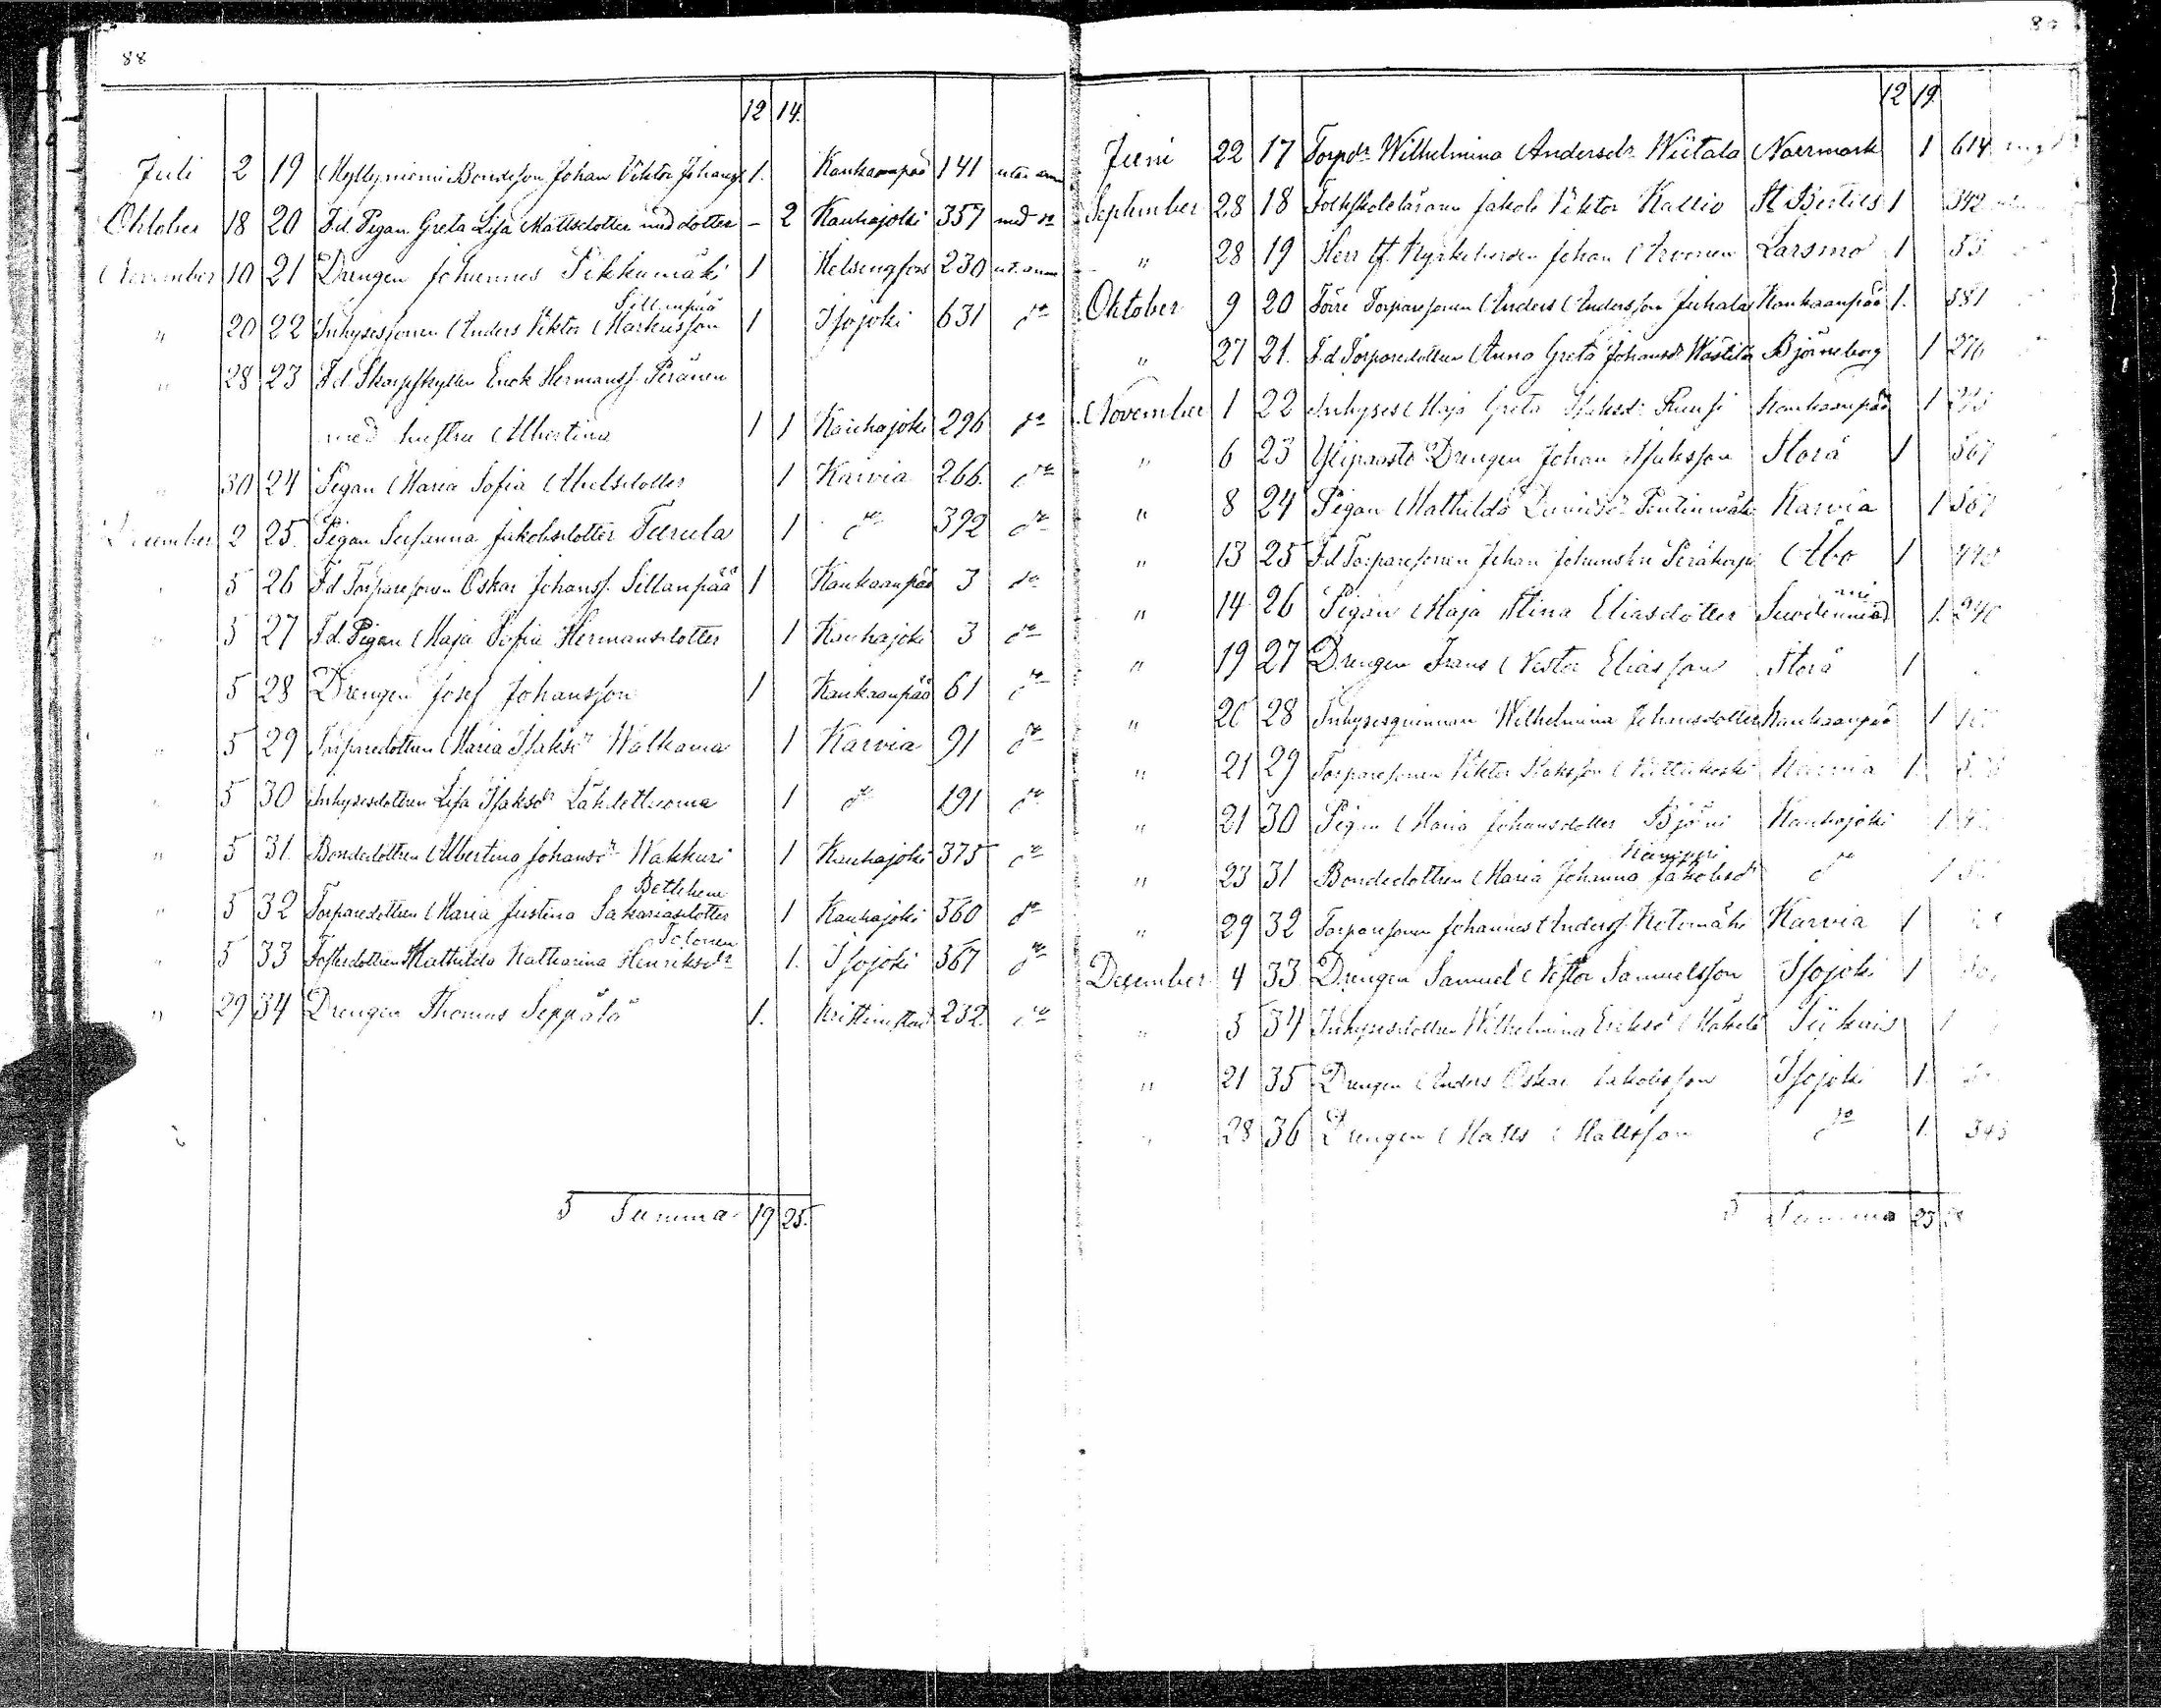 88
12 14.
Juli 2 19 Myllyniemi Bondeson Johan Viktor Johanss 1. Kankaanpää 141 utan anm
Oktober 18 20 F.d. Pigan Greta Lisa Mattsdotter med dotter - 2 Kauhajoki 357 med do
November 10 21 Drengen Johannes Pikkumäki 1 Helsingfors 230 ut. anm
Sillanpää
" 20 22 Inhysessonen Anders Viktor Markusson 1 Isojoki 631 do
" 28 23 F.d. Skarpskytten Enok Hermanss. Peränen
med hustru Albertina 1 1 Kauhajoki 296 do
" 30 24 Pigan Maria Sofia Abelsdotter 1 Karvia 266. do
December 2 25. Pigan Susanna Jakobsdotter Turula 1 do 392 do
" 5 26 F.d. Torparesonen Oskar Johanss. Sillanpää 1 Kankaanpää 3 do
" 5 27 F.d. Pigan Maja Sofia Hermansdotter 1 Kauhajoki 3 do
5 28 Drengen Josef Johansson 1 Kankaanpää 61 do
" 5 29 Torparedottren Maria Isaksdr Walkama 1 Karvia 91 do
" 5 30 Inhysesdottren Lisa Isaksdr Lähdetluoma 1 do 191 do
" 5 31. Bondedottren Albertina Johansdr Wakkuri 1 Kauhajoki 375 do
Betlehem
" 5 32 Torparedottren Maria Justina Sakariasdotter 1 Kauhajoki 360 do
Tolonen
" 5 33 Fosterdottren Mathilda Katharina Henriksdr 1. Isojoki 367 do
" 29 34 Drengen Thomas Seppälä 1. Kristinestad 232. do
5 Summa 19 25.
89
12 19.
Juni 22 17 Torpdr Wilhelmina Andersdr Wiitala Norrmark 1 614
September 28 18 Folkskoleläraren Jakob Viktor Kallio St Bertils 1 342
" 28 19 Herr tf. Kyrkoherden Johan Arvonen Larsmo 1 53
Oktober 9 20 Förre Torparesonen Anders Andersson Juhala Kankaanpää 1. 381
" 27 21. F.d. Torparedottren Anna Greta Johansdr Wästilä Björneborg 1 276
November 1 22 Inhyses Maja Greta Isaksdr Kankaanpää 1
" 6 23 Ylipaasto Drengen Johan Isaksson Storå 1 567
" 8 24 Pigan Mathilda Davidsdr Karvia 1 567
" 13 25 F.d. Torparesonen Johan Johansson Peräkorpi Åbo 1
" 14 26 Pigan Maja Stina Eliasdotter Suodenniemi 1.
" 19 27 Drengen Frans Nestor Eliasson Storå 1
" 20 28 Inhysesqvinnan Wilhelmina Johansdotter Kankaanpää 1
" 21 29 Torparesonen Viktor Isaksson Karvia 1.
" 21 30 Pigan Maria Johansdotter Björni Kauhajoki 1
" 23 31 Bondedottren Maria Johanna Jakobsdr do 1
" 29 32 Torparesonen Johannes Anderss. Ketomäki Karvia 1
December 4 33 Drengen Samuel Nestor Samuelsson Isojoki 1
" 5 34 Inhysesdottren Wilhelmina Eriksdr Mäkelä Siikais 1
" 21 35 Drengen Anders Oskar Jakobsson Isojoki 1.
" 28 36 Drengen Matts Mattsson do 1. 345
Summa 23